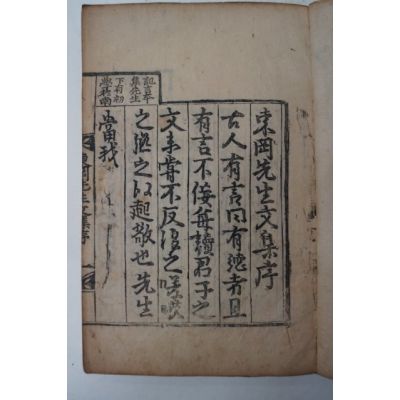 東岡先生文集序
古人有言曰有德者且
有言不佞每讀君子之
文未嘗不反復之嗟歎
之繼之以起敬也先生
集先生
下有初
當我
東岡先生文集序 一